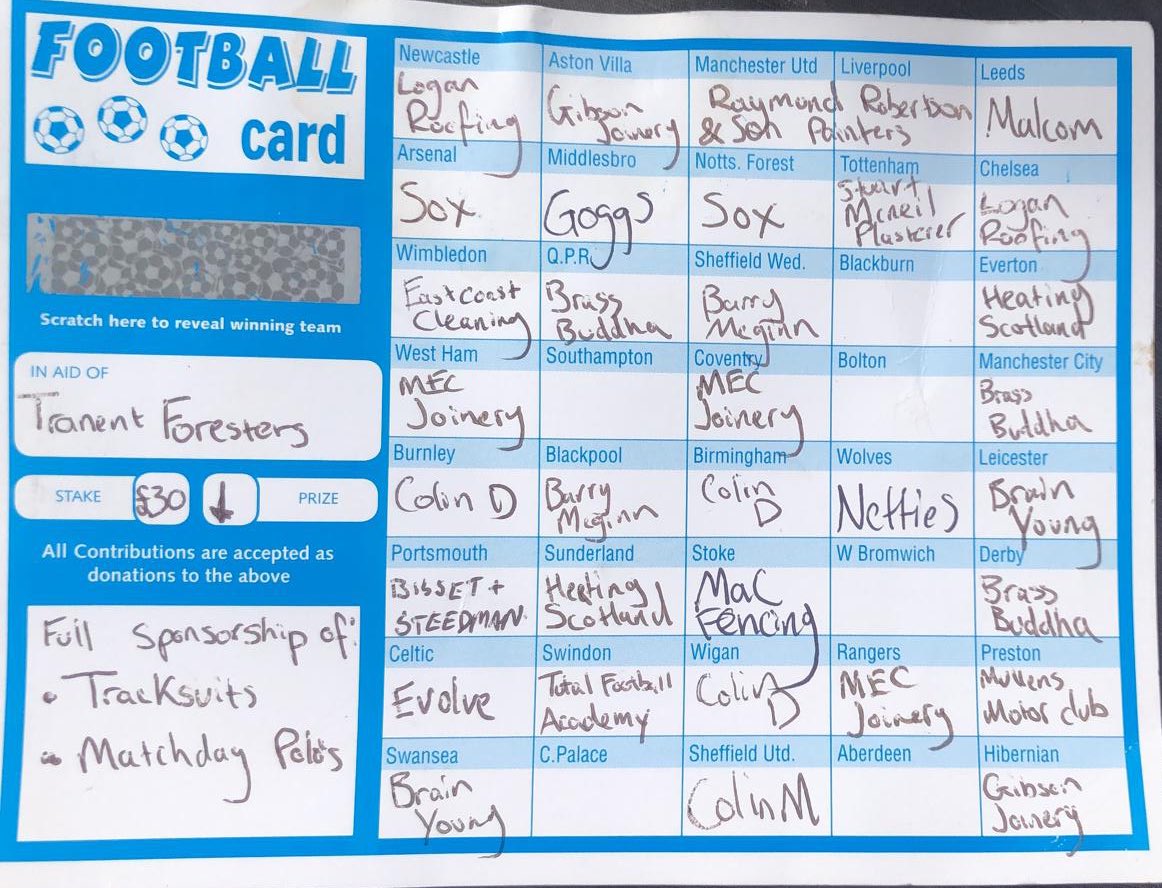 FOOTBALL
card
Scratch here to reveal winning team
IN AID OF
Tranent Foresters
STAKE £30 PRIZE
All Contributions are accepted as
donations to the above
Full Sponsorship of:
• Tracksuits
• Matchday Polo's
Newcastle Aston Villa Manchester Utd Liverpool Leeds
Logan Gibson Raymond Robertson Malcom
Roofing Joinery & Son Painters
Arsenal Middlesbro Notts. Forest Tottenham Chelsea
Sox Goggs Sox Stuart Logan
Mcneil Roofing
Plasterer
Wimbledon Q.P.R. Sheffield Wed. Blackburn Everton
East Coast Brass Barry Heating
Cleaning Buddha Mcginn Scotland
West Ham Southampton Coventry Bolton Manchester City
MEC MEC Brass
Joinery Joinery Buddha
Burnley Blackpool Birmingham Wolves Leicester
Colin D Barry Colin Netties Brain
Mcginn D Young
Portsmouth Sunderland Stoke W Bromwich Derby
BISSET + Heating Mac Brass
STEEDMAN Scotland Fencing Buddha
Celtic Swindon Wigan Rangers Preston
Evolve Total Football Colin MEC Mullens
Academy D Joinery Motor club
Swansea C.Palace Sheffield Utd. Aberdeen Hibernian
Brain Colin M Gibson
Young Joinery